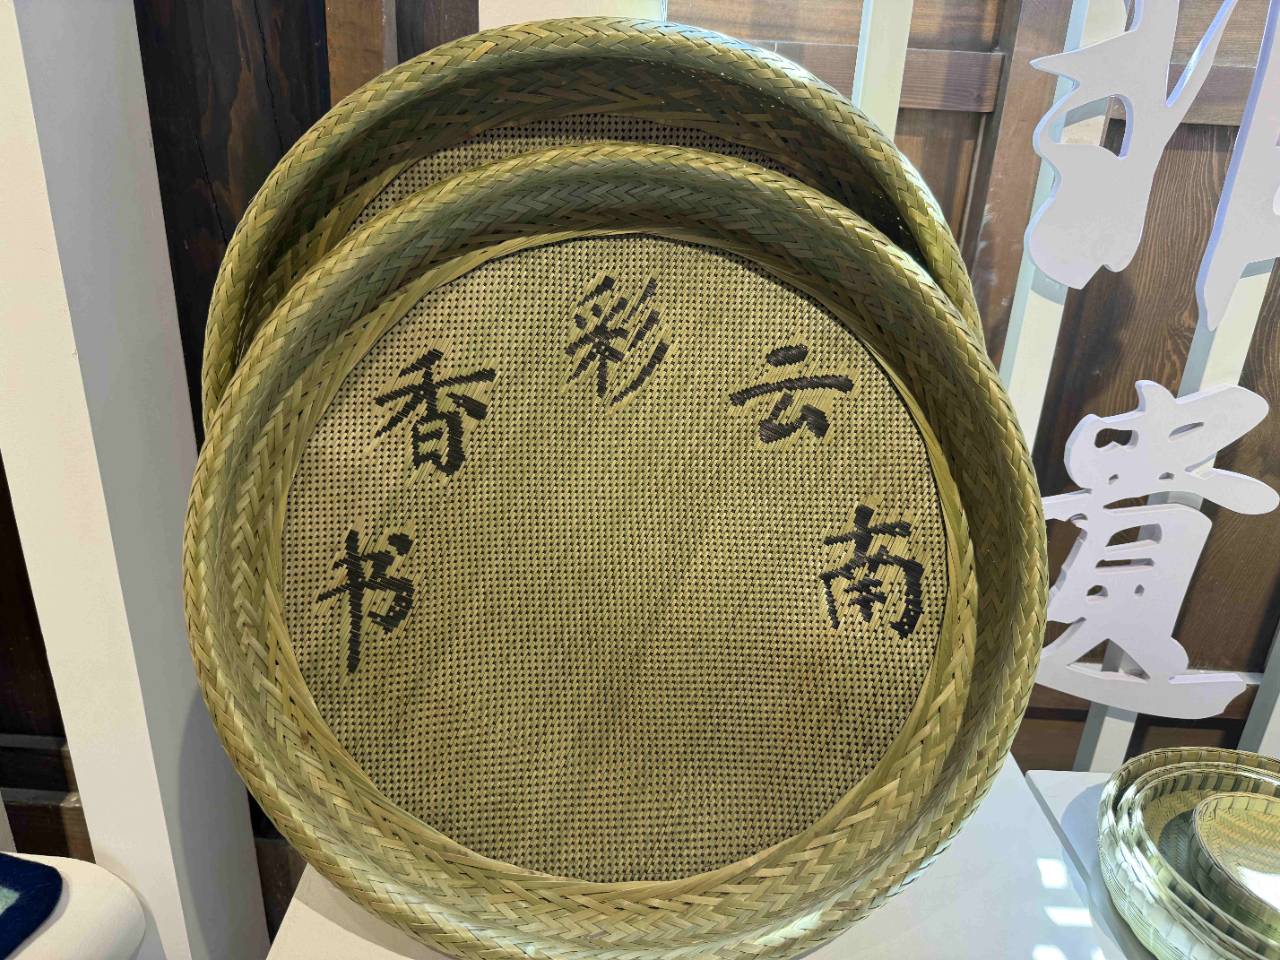 书香彩云南
遺